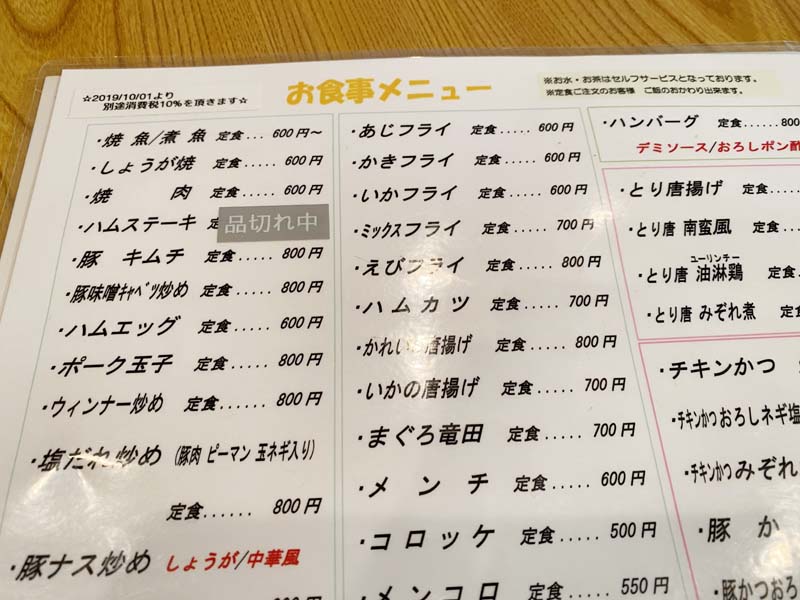 ☆2019/10/01より
別途消費税10%を頂きます☆
お食事メニュー
※お水・お茶はセルフサービスとなっております。
※定食ご注文のお客様　ご飯のおかわり出来ます。
・焼 魚/煮 魚 定食... 600円～
・しょうが焼 定食..... 600円
・焼　　肉 定食..... 600円
・ハムステーキ 品切れ中
・豚　キムチ 定食..... 800円
・豚味噌ｷｬﾍﾞﾂ炒め 定食..... 800円
・ハムエッグ 定食..... 600円
・ポーク玉子 定食..... 800円
・ウィンナー炒め 定食..... 800円
・塩だれ炒め (豚肉 ピーマン 玉ネギ入り)
定食...... 800円
・豚ナス炒め しょうが/中華風
・あじフライ 定食..... 600円
・かきフライ 定食..... 600円
・いかフライ 定食..... 600円
・ミックスフライ 定食..... 700円
・えびフライ 定食..... 800円
・ハムカツ 定食..... 700円
・かれいの唐揚げ 定食..... 800円
・いかの唐揚げ 定食..... 700円
・まぐろ竜田 定食..... 700円
・メ　ン　チ 定食..... 600円
・コロッケ 定食..... 500円
・メンコロ 定食..... 550円
・ハンバーグ 定食.....800
デミソース/おろしポン酢
・とり唐揚げ 定食....
・とり唐 南蛮風 定食...
ユーリンチー
・とり唐 油淋鶏 定食
・とり唐 みぞれ煮 定
・チキンかつ
・チキンかつ おろしネギ塩
・チキンかつ みぞれ
・豚　か
・豚かつおろ